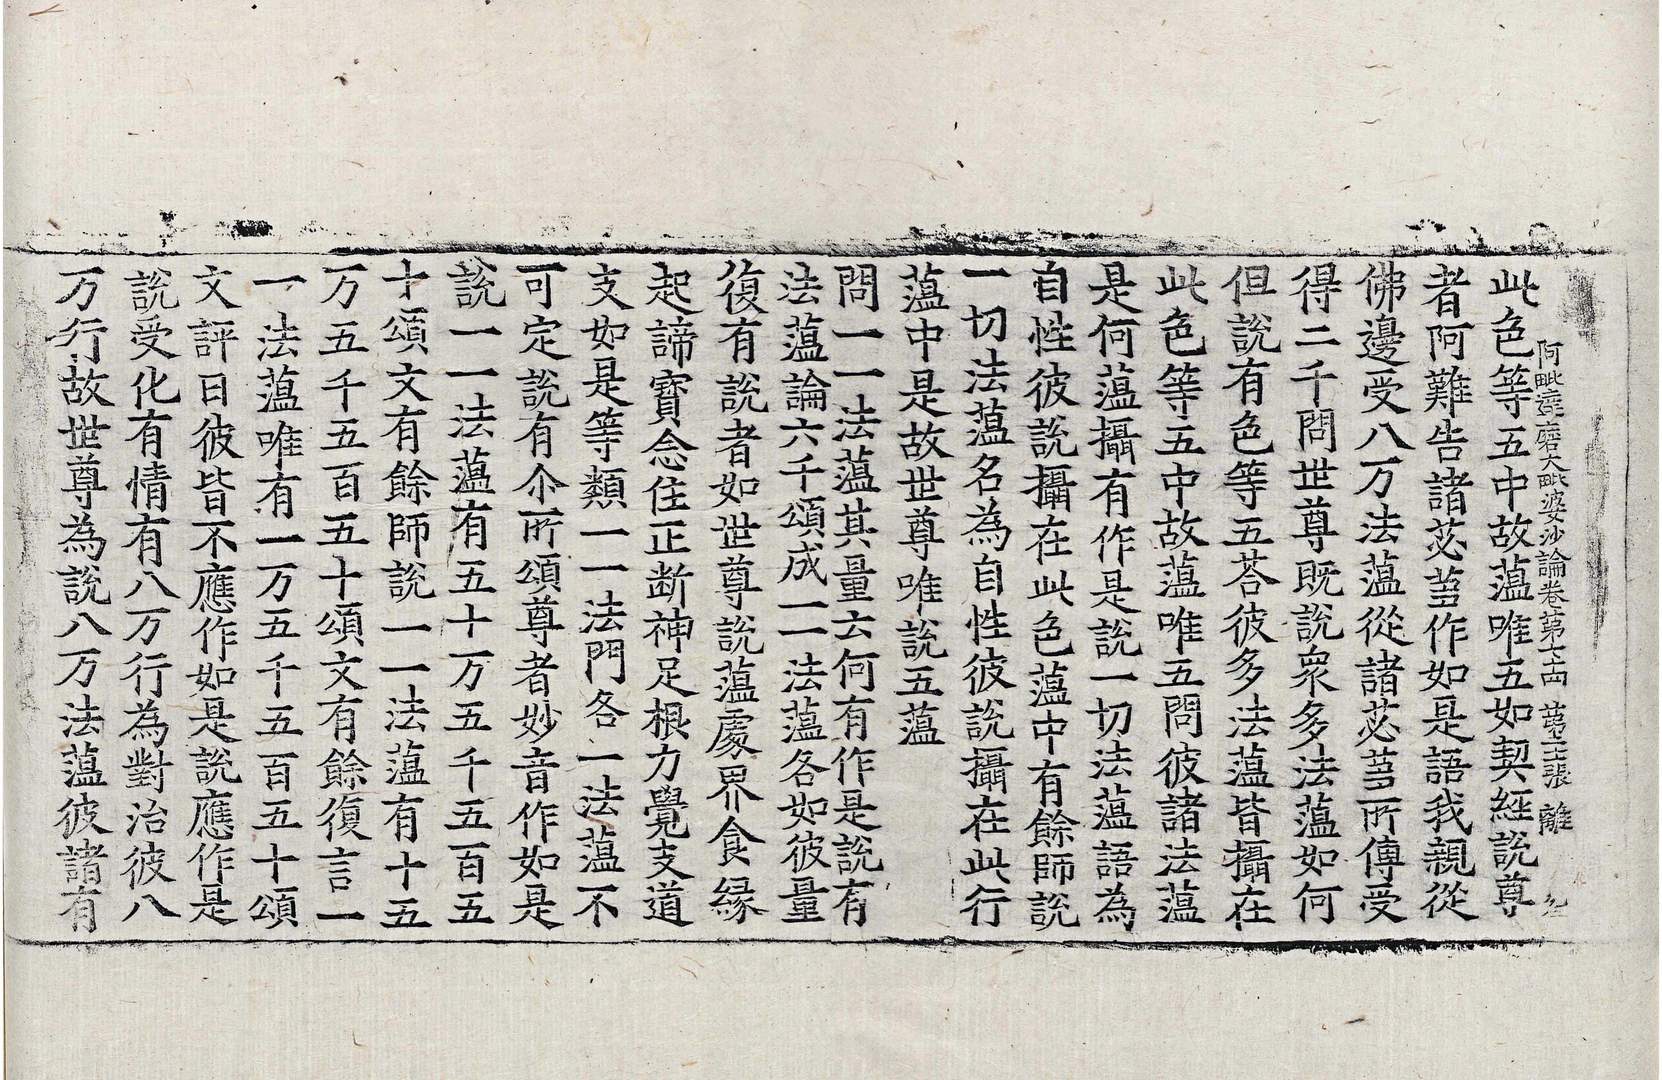 阿毗達磨大毗婆沙論卷第七十四 第十二張 離
此色等五中故薀唯五如契經說尊
者阿難告諸苾蒭作如是語我親從
佛邊受八万法薀從諸苾蒭所傳受
得二千問世尊既說衆多法薀如何
但說有色等五荅彼多法薀皆攝在
此色等五中故薀唯五問彼諸法薀
是何薀攝有作是說一切法薀語為
自性彼說攝在此色薀中有餘師說
一切法薀名為自性彼說攝在此行
薀中是故世尊唯說五薀
問一一法薀其量云何有作是說有
法薀論六千頌成一一法薀各如彼量
復有說者如世尊說薀處界食緣
起諦寶念住正断神足根力覺支道
支如是等類一一法門各一法薀不
可定說有尒所頌尊者妙音作如是
說一一法薀有五十万五千五百五
十頌文有餘師說一一法薀有十五
万五千五百五十頌文有餘復言一
一法薀唯有一万五千五百五十頌
文評曰彼皆不應作如是說應作是
說受化有情有八万行為對治彼八
万行故世尊為說八万法薀彼諸有